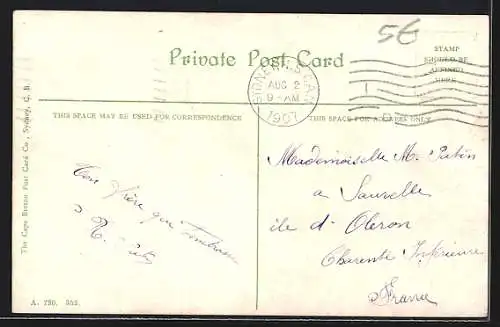 56
Private Post Card
STAMP
SHOULD BE
AFFIXED
HERE
SYDNEY N.S. CAN.
AUG 2
9-AM
1907
THIS SPACE MAY BE USED FOR CORRESPONDENCE
THIS SPACE FOR ADDRESS ONLY
The Cape Breton Post Card Co., Sydney, C. B.
Ton frère qui
Mademoiselle M.
a Sauzelle
ile d'Oleron
Charente Inférieure
France
A. 730. 352.